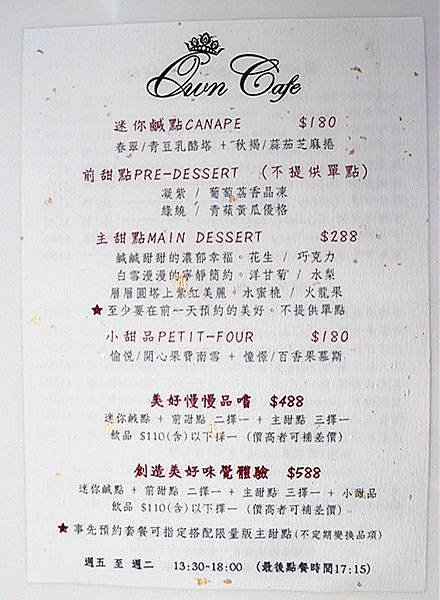 Own Cafe
迷你鹹點CANAPE $180
春翠/青豆乳酪塔 + 秋褐/蒜茄芝麻捲
前甜點PRE-DESSERT (不提供單點)
凝紫 / 葡萄荔香晶凍
綠繞 / 青蘋黃瓜優格
主甜點MAIN DESSERT $288
鹹鹹甜甜的濃郁幸福。花生 / 巧克力
白雪漫漫的寧靜簡約。洋甘菊 / 水梨
層層圓塔上紫紅美麗。水蜜桃 / 火龍果
★至少要在前一天預約的美好。不提供單點
小甜品PETIT-FOUR $180
愉悅/開心果費南雪 + 憧憬/百香果慕斯
美好慢慢品嚐 $488
迷你鹹點 + 前甜點 二擇一 + 主甜點 三擇一
飲品 $110(含)以下擇一 (價高者可補差價)
創造美好味覺體驗 $588
迷你鹹點 + 前甜點 二擇一 + 主甜點 三擇一 + 小甜品
飲品 $110(含)以下擇一 (價高者可補差價)
★事先預約套餐可指定搭配限量版主甜點(不定期變換品項)
週五 至 週二 13:30-18:00 (最後點餐時間17:15)